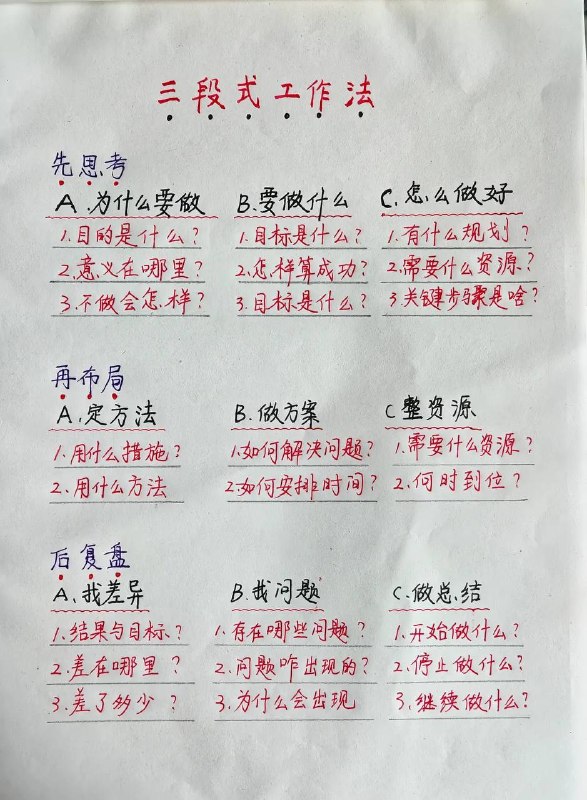 三段式工作法
先思考
A.为什么要做
1.目的是什么?
2.意义在哪里?
3.不做会怎样?
B.要做什么
1.目标是什么?
2.怎样算成功?
3.目标是什么?
C.怎么做好
1.有什么规划?
2.需要什么资源?
3.关键步骤是啥?
再布局
A.定方法
1.用什么措施?
2.用什么方法
B.做方案
1.如何解决问题?
2.如何安排时间?
C整资源
1.需要什么资源?
2.何时到位?
后复盘
A.找差异
1.结果与目标?
2.差在哪里?
3.差了多少?
B.找问题
1.存在哪些问题?
2.问题咋出现的?
3.为什么会出现
C.做总结
1.开始做什么?
2.停止做什么?
3.继续做什么?